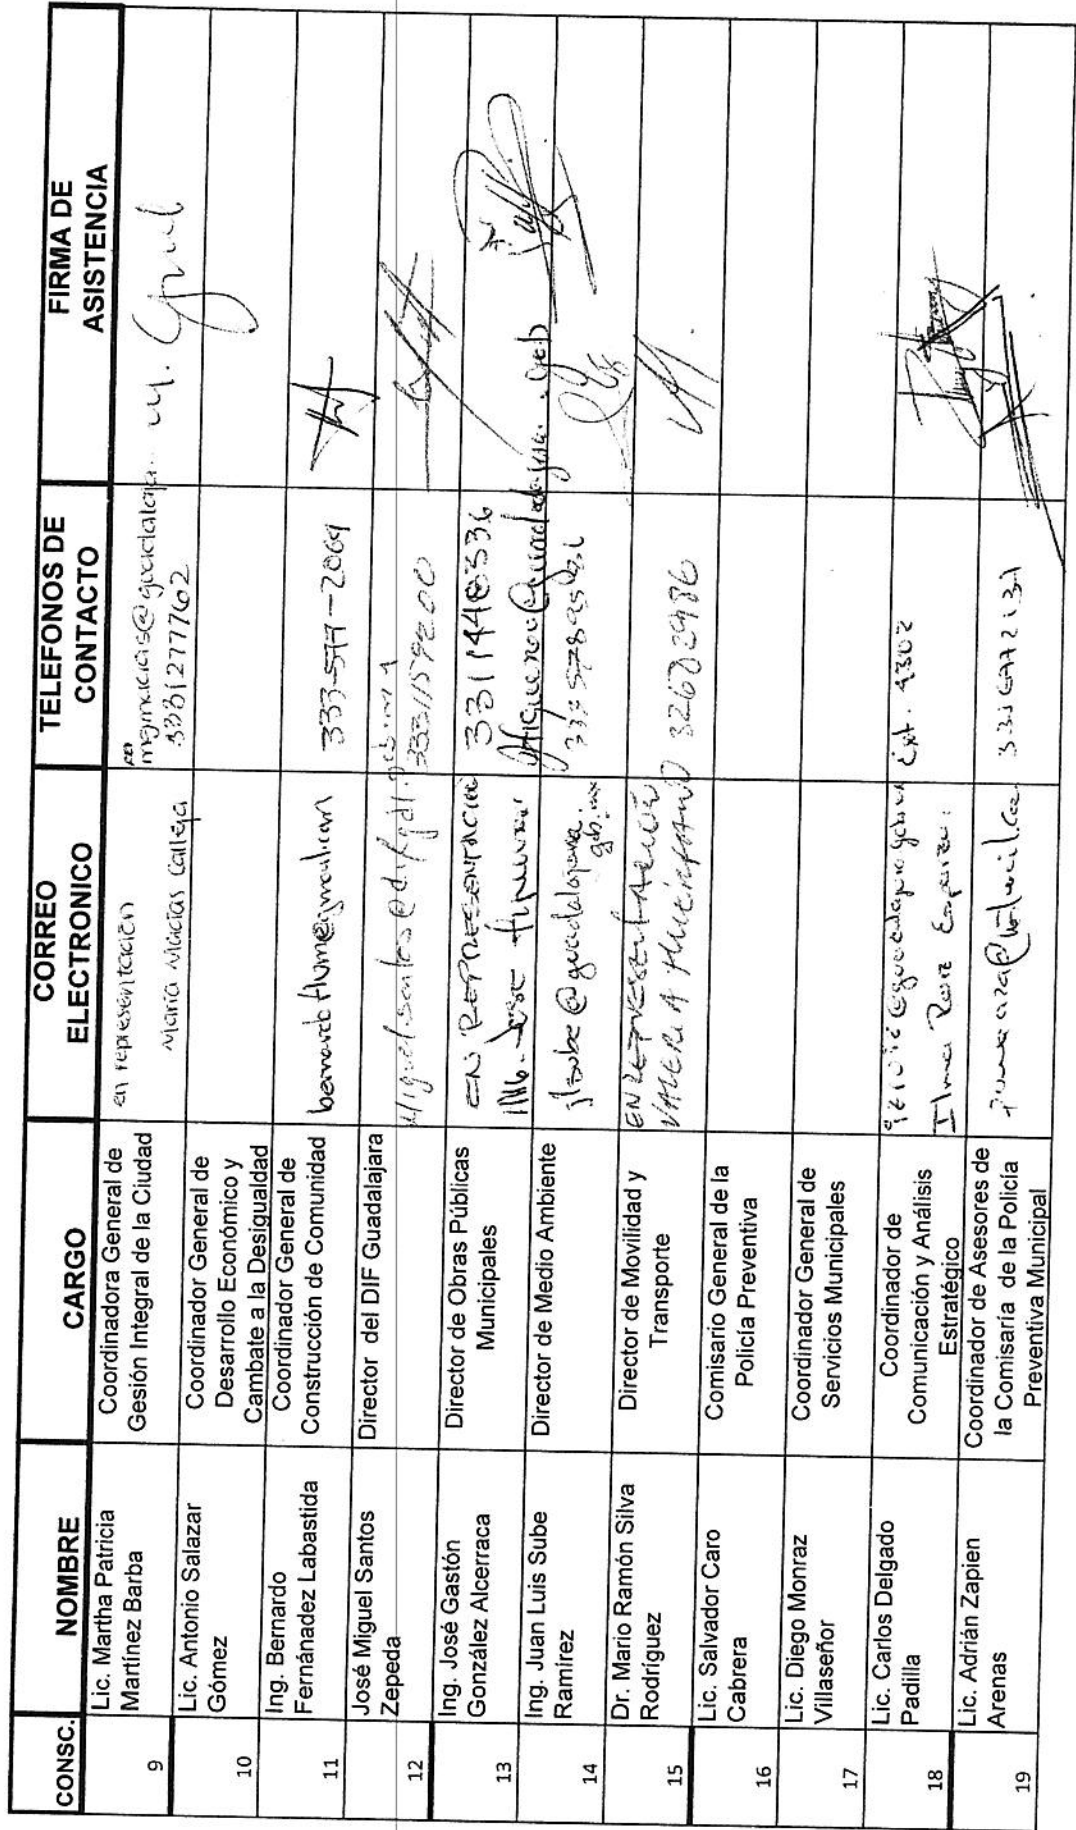 CONSC.
NOMBRE
CARGO
CORREO
ELECTRONICO
TELEFONOS DE
CONTACTO
FIRMA DE
ASISTENCIA
9
Lic. Martha Patricia
Martínez Barba
Coordinadora General de
Gesión Integral de la Ciudad
en representación
María Macías Calleja
3331277762
10
Lic. Antonio Salazar
Gómez
Coordinador General de
Desarrollo Económico y
Cambate a la Desigualdad
11
Ing. Bernardo
Fernánadez Labastida
Coordinador General de
Construcción de Comunidad
333-577-2069
12
José Miguel Santos
Zepeda
Director del DIF Guadalajara
13
Ing. José Gastón
González Alcerraca
Director de Obras Públicas
Municipales
EN REPRESENTACIÓN
14
Ing. Juan Luis Sube
Ramírez
Director de Medio Ambiente
jlsube@guadalajara.
gob.mx
15
Dr. Mario Ramón Silva
Rodríguez
Director de Movilidad y
Transporte
EN REPRESENTACIÓN
VALERIA HUÉRFANO
16
Lic. Salvador Caro
Cabrera
Comisario General de la
Policía Preventiva
17
Lic. Diego Monraz
Villaseñor
Coordinador General de
Servicios Municipales
18
Lic. Carlos Delgado
Padilla
Coordinador de
Comunicación y Análisis
Estratégico
Ext. 4302
19
Lic. Adrián Zapien
Arenas
Coordinador de Asesores de
la Comisaría de la Policía
Preventiva Municipal